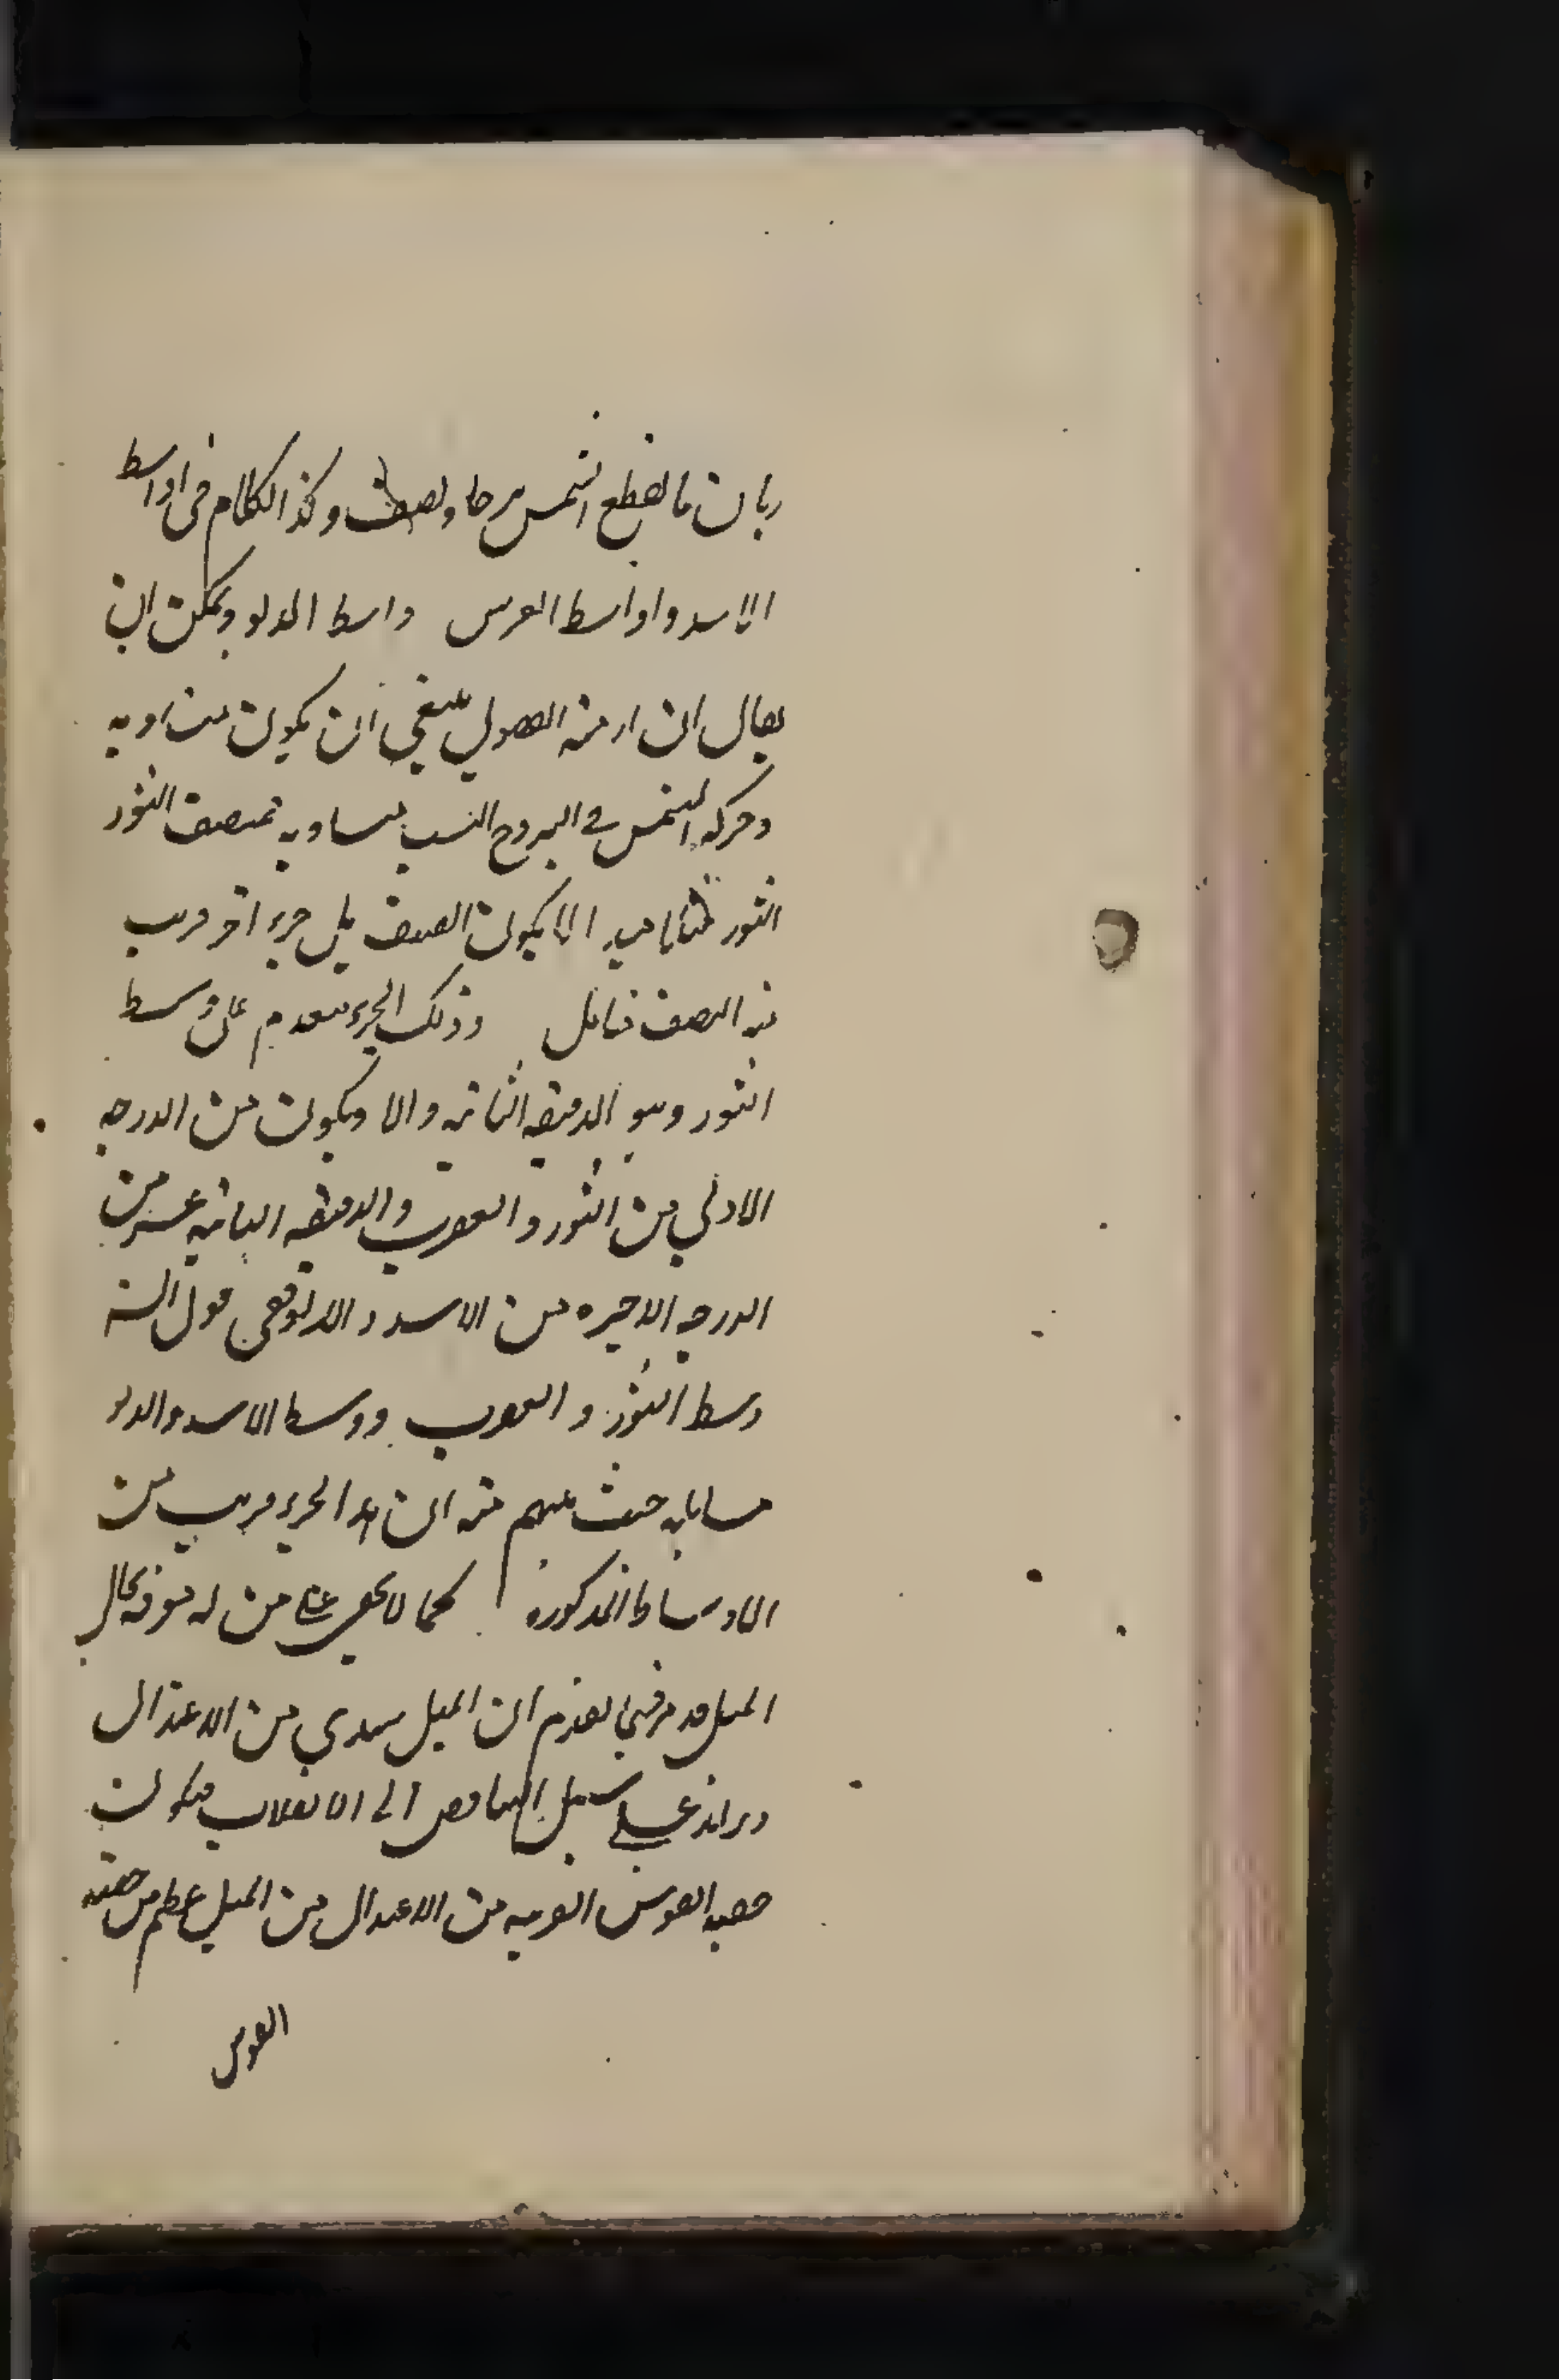 زمان ما يقطع الشمس برجا ونصف وكذا الكلام فى اواسط
الاسد واواسط العقرب واسط الدلو ويمكن ان
يقال ان ازمنه الفصول ينبغي ان يكون متساويه
وحركه الشمس في البروج ليست بمتساويه فمنصف الثور
الثور مثلا لا يكون النصف بل جزء اخر قريب
من النصف فتامل وذلك الجزء متقدم على وسط
الثور وهو الدقيقه الثانيه والا ويكون من الدرجه
الاولي من الثور والعقرب والدقيقه الثانيه عشر من
الدرجه الاخيره من الاسد والدلو ففي قول السه
وسط الثور والعقرب ووسط الاسد والدلو
حيث فهم منه ان هذا الجزء قريب من
الاوساط المذكوره كما لا يخفى على من له معرفه بحال
الميل قد مر فيما تقدم ان الميل يبتدي من الاعتدال
ويزايد على سبيل التناقص الى الانقلاب فيكون
حصه القوس القريبه من الاعتدال من الميل اعظم من حصته
القوس